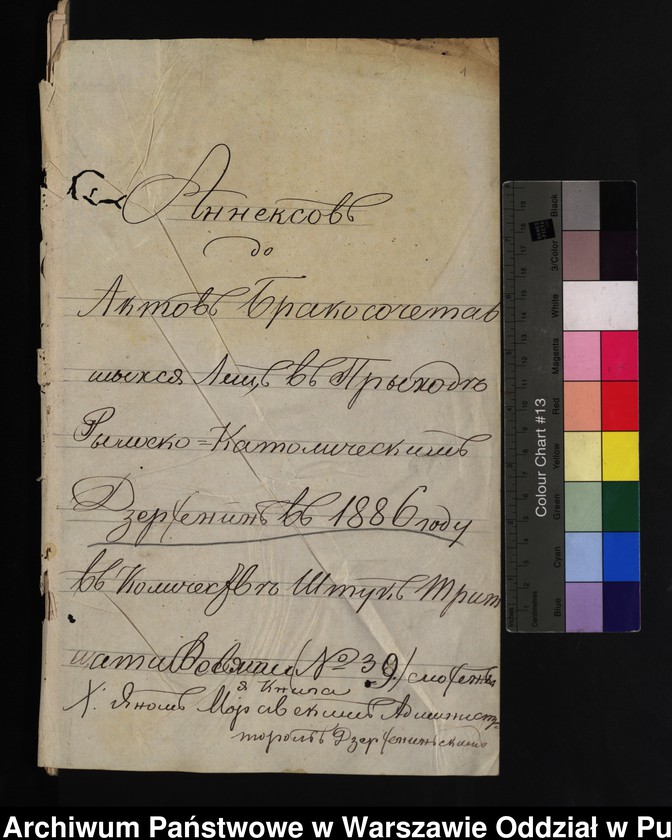 1
Аннексовъ
до
Актовъ Бракосочетав
шихся Лицъ въ Приходѣ
Рымско=Католическимъ
Дзерженинъ въ 1886 году
въ Количествѣ Штукъ Трит
цати (№ 39)
я Книга
Х: Яномъ Администр
торомъ Дзерженинскимъ
Colour Chart #13
Black
3/Color
White
Magenta
Red
Yellow
Green
Cyan
Blue
Centimetres
Inches
Archiwum Państwowe w Warszawie Oddział w Pu